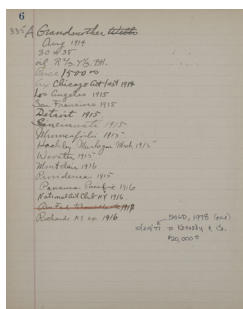 6
335 A Grandmother
Aug 1914
30 x 25
Price 1500 00
Chicago Art Inst 1914
Los Angeles 1915
San Francisco 1915
Detroit 1915
Cincinnati 1915
Minneapolis 1915
Hackley Muskegon Mich 1915
Worcester 1915
Montclair 1916
Providence 1915
Panama Pacific 1916
National Art Club NY 1916
1916
SOLD, 1978
to Kennedy & Co.
$20,000